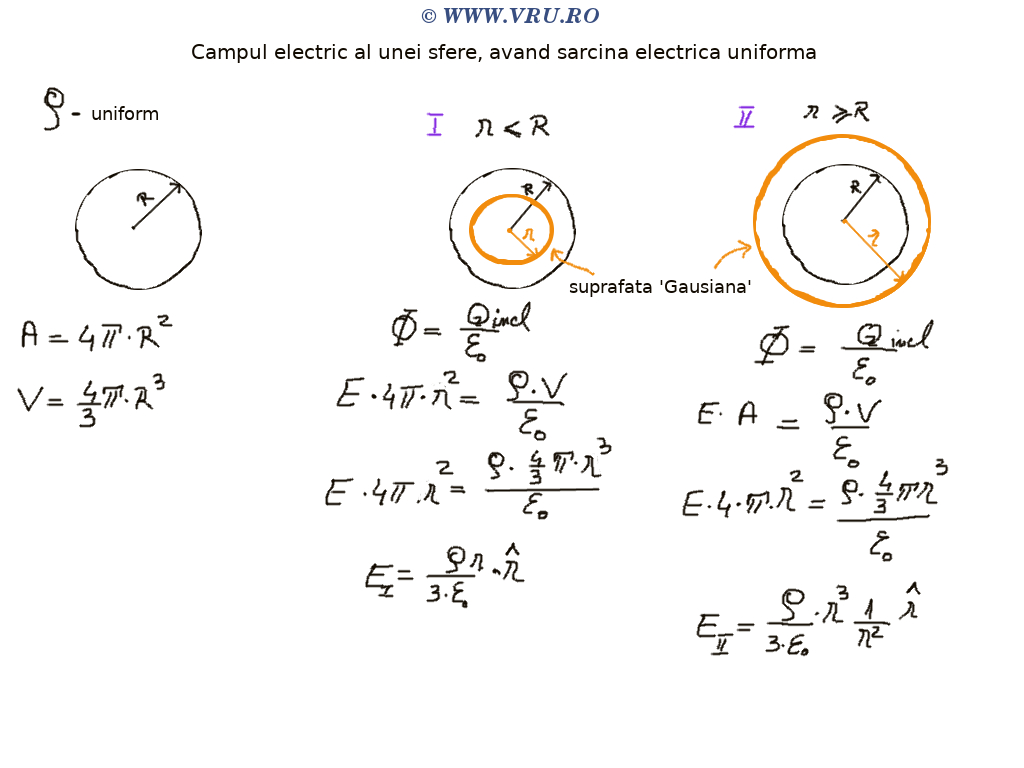 © WWW.VRU.RO
Campul electric al unei sfere, avand sarcina electrica uniforma
ρ - uniform
R
A = 4π·R²
V = 4/3 π·R³
I r < R
R
r
suprafata 'Gausiana'
Φ = Qincl / ε₀
E·4π·r² = ρ·V / ε₀
E·4π·r² = ρ·4/3 π·r³ / ε₀
E_I = ρr / 3·ε₀ · r̂
II r ⩾ R
R
r
Φ = Qincl / ε₀
E·A = ρ·V / ε₀
E·4·π·r² = ρ·4/3 πr³ / ε₀
E_II = ρ / 3·ε₀ · r³ 1/r² r̂